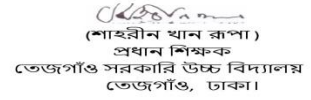 (শাহরীন খান রূপা)
প্রধান শিক্ষক
তেজগাঁও সরকারি উচ্চ বিদ্যালয়
তেজগাঁও, ঢাকা।